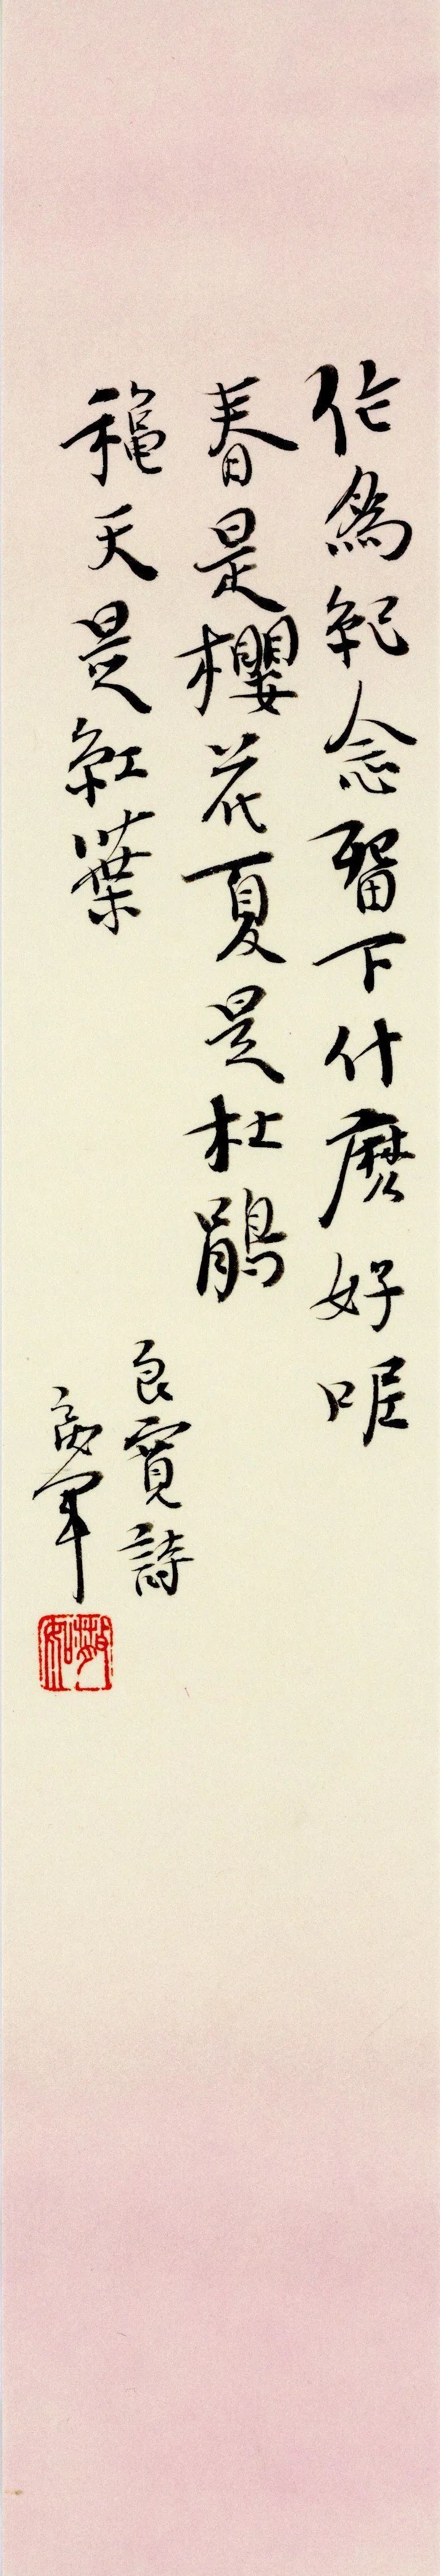 作為紀念留下什麼好呢
春是櫻花夏是杜鵑
穐天是紅葉
良寬詩